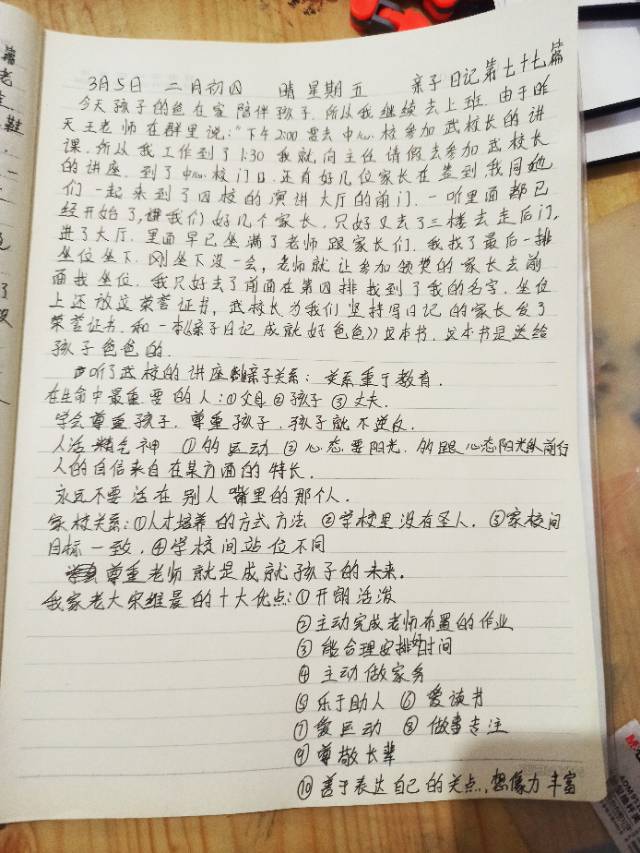 3月5日 二月初四 晴 星期五 亲子日记第七十七篇
今天孩子的爸在家陪伴孩子.所以我继续去上班.由于昨
天王老师在群里说:"下午2:00需去中心校参加武校长的讲
课.所以我工作到了1:30我就向主任请假去参加武校长
的讲座.到了中心校门口.还有好几位家长在签到.我同她
们一起来到了四校的演讲大厅的前门.一听里面都已
经开始了,我们好几个家长.只好又去了三楼去走后门,
进了大厅.里面早已坐满了老师跟家长们.我找了最后一排
坐位坐下.刚坐下没一会,老师就让参加领奖的家长去前
面找坐位.我只好去了前面在第四排找到了我的名字.坐位
上还放这荣誉证书,武校长为我们坚持写日记的家长发了
荣誉证书.和一本《亲子日记成就好爸爸》这本书.这本书是送给
孩子爸爸的.
听了武校的讲座亲子关系:关系重于教育.
在生命中最重要的人:①父母②孩子③丈夫.
学会尊重孩子.尊重孩子.孩子就不逆反.
人活精气神 ①多运动②心态要阳光.多跟心态阳光队前行
人的自信来自在某方面的特长.
永远不要活在别人嘴里的那个人.
家校关系:①人才培养的方式方法 ②学校里没有圣人.③家校间
目标一致.④学校间站位不同
尊重老师就是成就孩子的未来.
我家老大宋维晨的十大优点:①开朗活泼
②主动完成老师布置的作业
③能合理安排的时间
④主动做家务
⑤乐于助人 ⑥爱读书
⑦爱运动 ⑧做事专注
⑨尊敬长辈
⑩善于表达自己的关点,想像力丰富